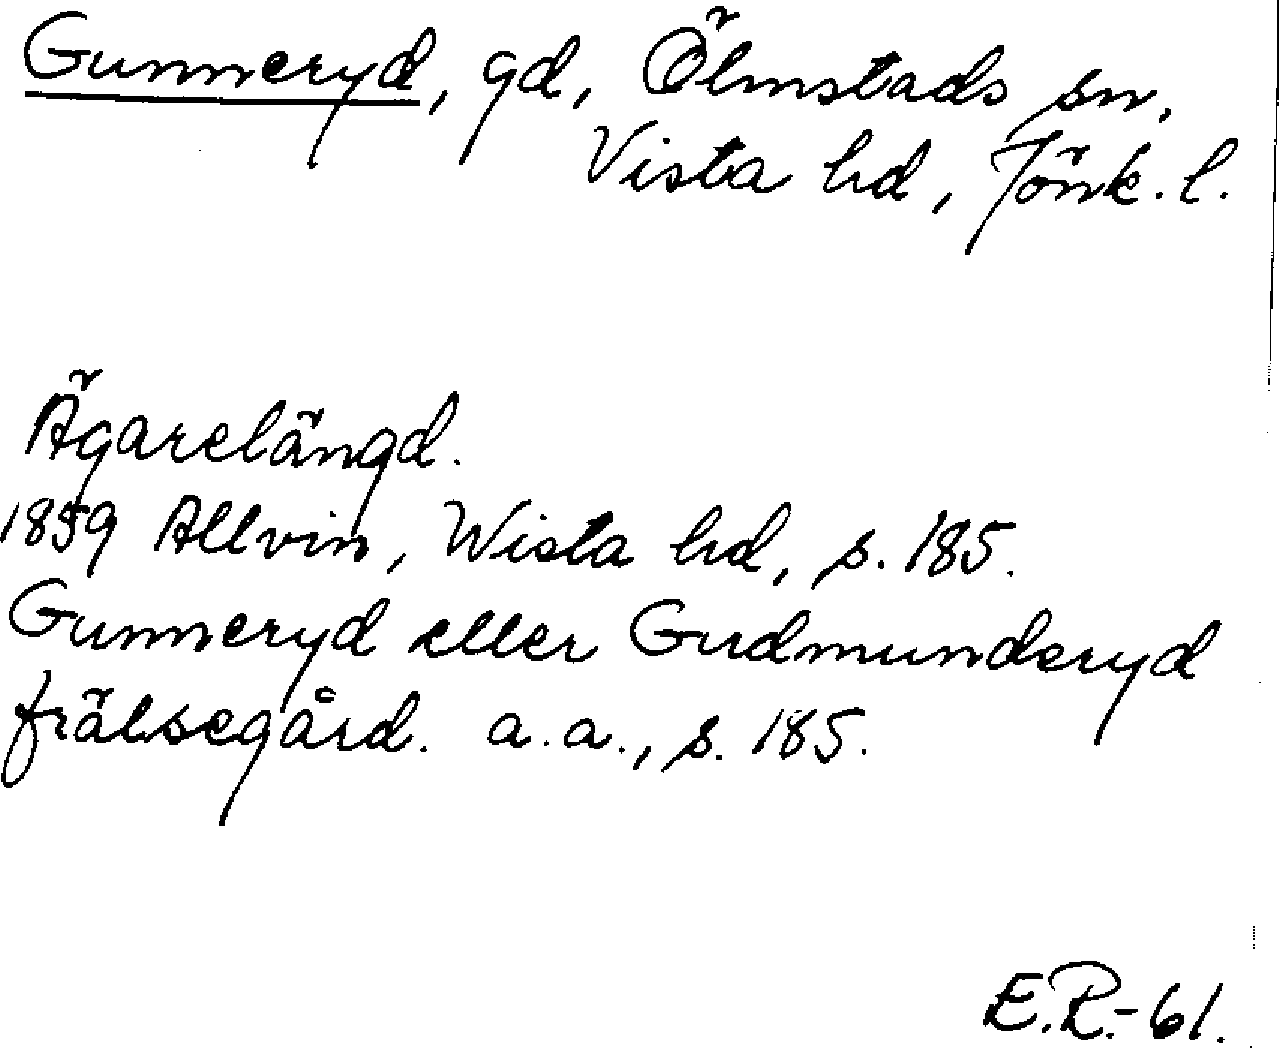 Gunneryd, gd, Ölmstads sn,
Vista hd, Jönk. l.
Ägarelängd.
1859 Allvin, Wista hd, s. 185.
Gunneryd eller Gudmunderyd
frälsegård. a.a., s. 185.
E.R.-61.